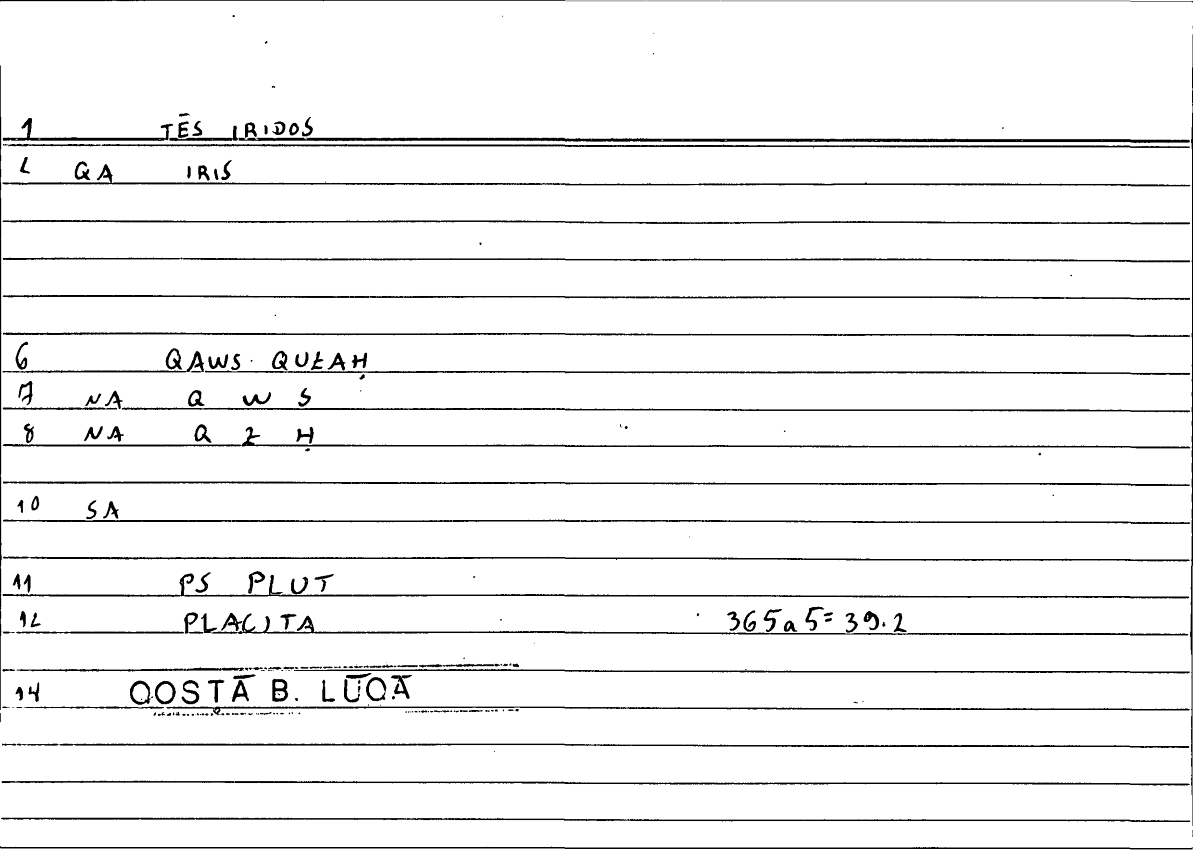 1 TĒS IRIDOS
2 QA IRIS
6 QAWS QUZAḤ
7 NA Q W S
8 NA Q Z Ḥ
10 SA
11 PS PLUT
12 PLACITA 365a5=39.2
14 QOSṬĀ B. LŪQĀ